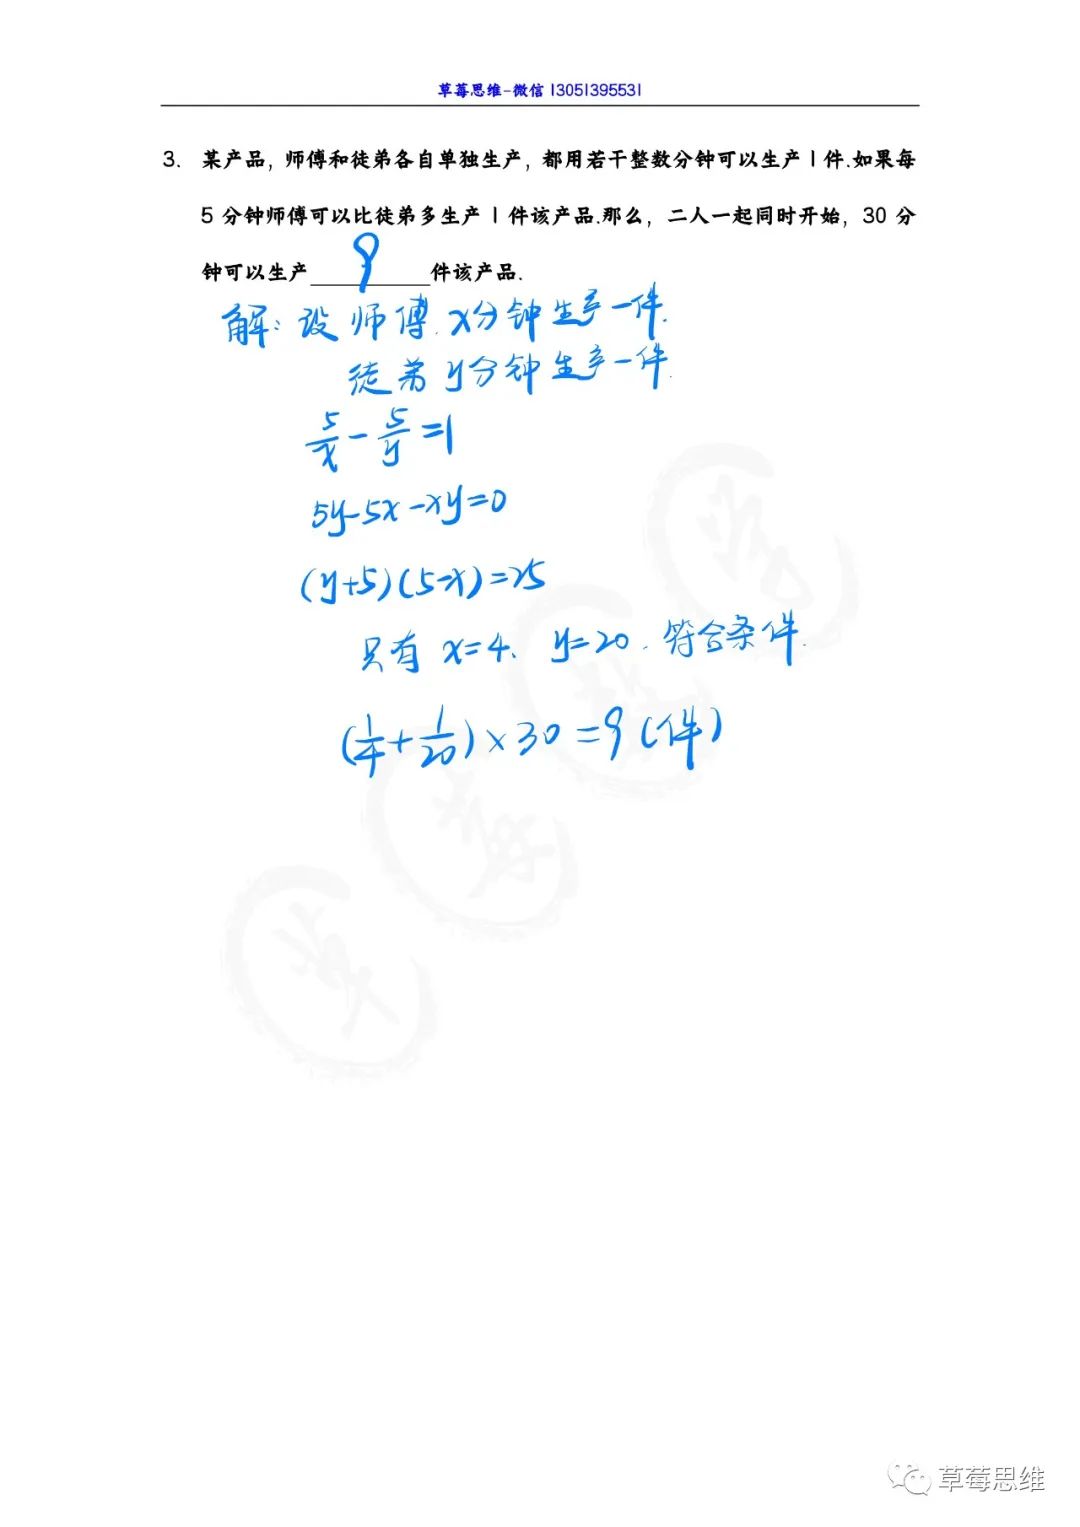 草莓思维-微信 13051395531
3. 某产品，师傅和徒弟各自单独生产，都用若干整数分钟可以生产1件.如果每
5分钟师傅可以比徒弟多生产1件该产品.那么，二人一起同时开始，30分
钟可以生产 9 件该产品.
解：设师傅 x分钟生产一件.
徒弟 y分钟生产一件.
5/x - 5/y = 1
5y-5x-xy=0
(y+5)(5-x)=25
只有 x=4、y=20. 符合条件.
(1/4 + 1/20) × 30 = 9 (件)
草莓思维